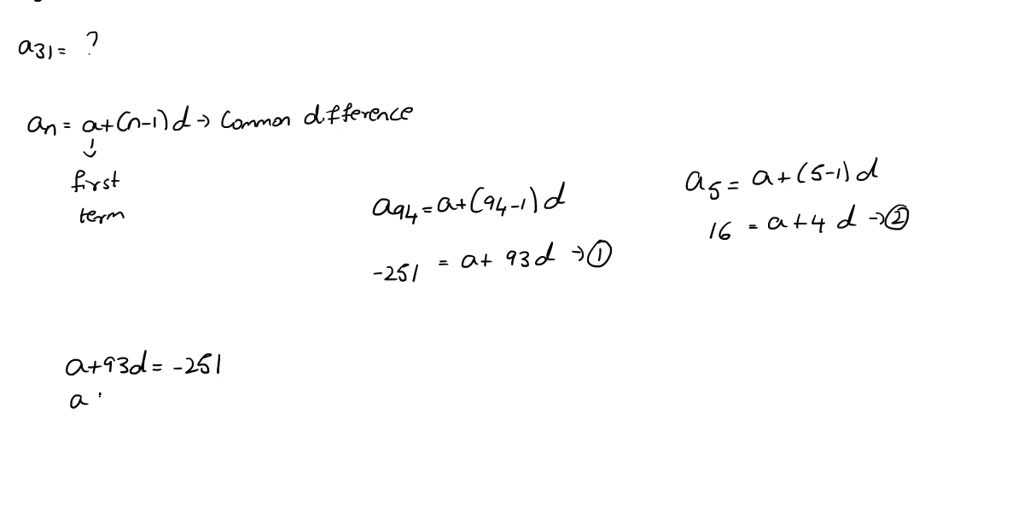 a₃₁ = ?
aₙ = a+(n-1)d → Common difference
↓
first
term
a₉₄ = a+(94-1)d
-251 = a+ 93d → ①
a₅ = a+(5-1)d
16 = a+4 d → ②
a+93d = -251
a